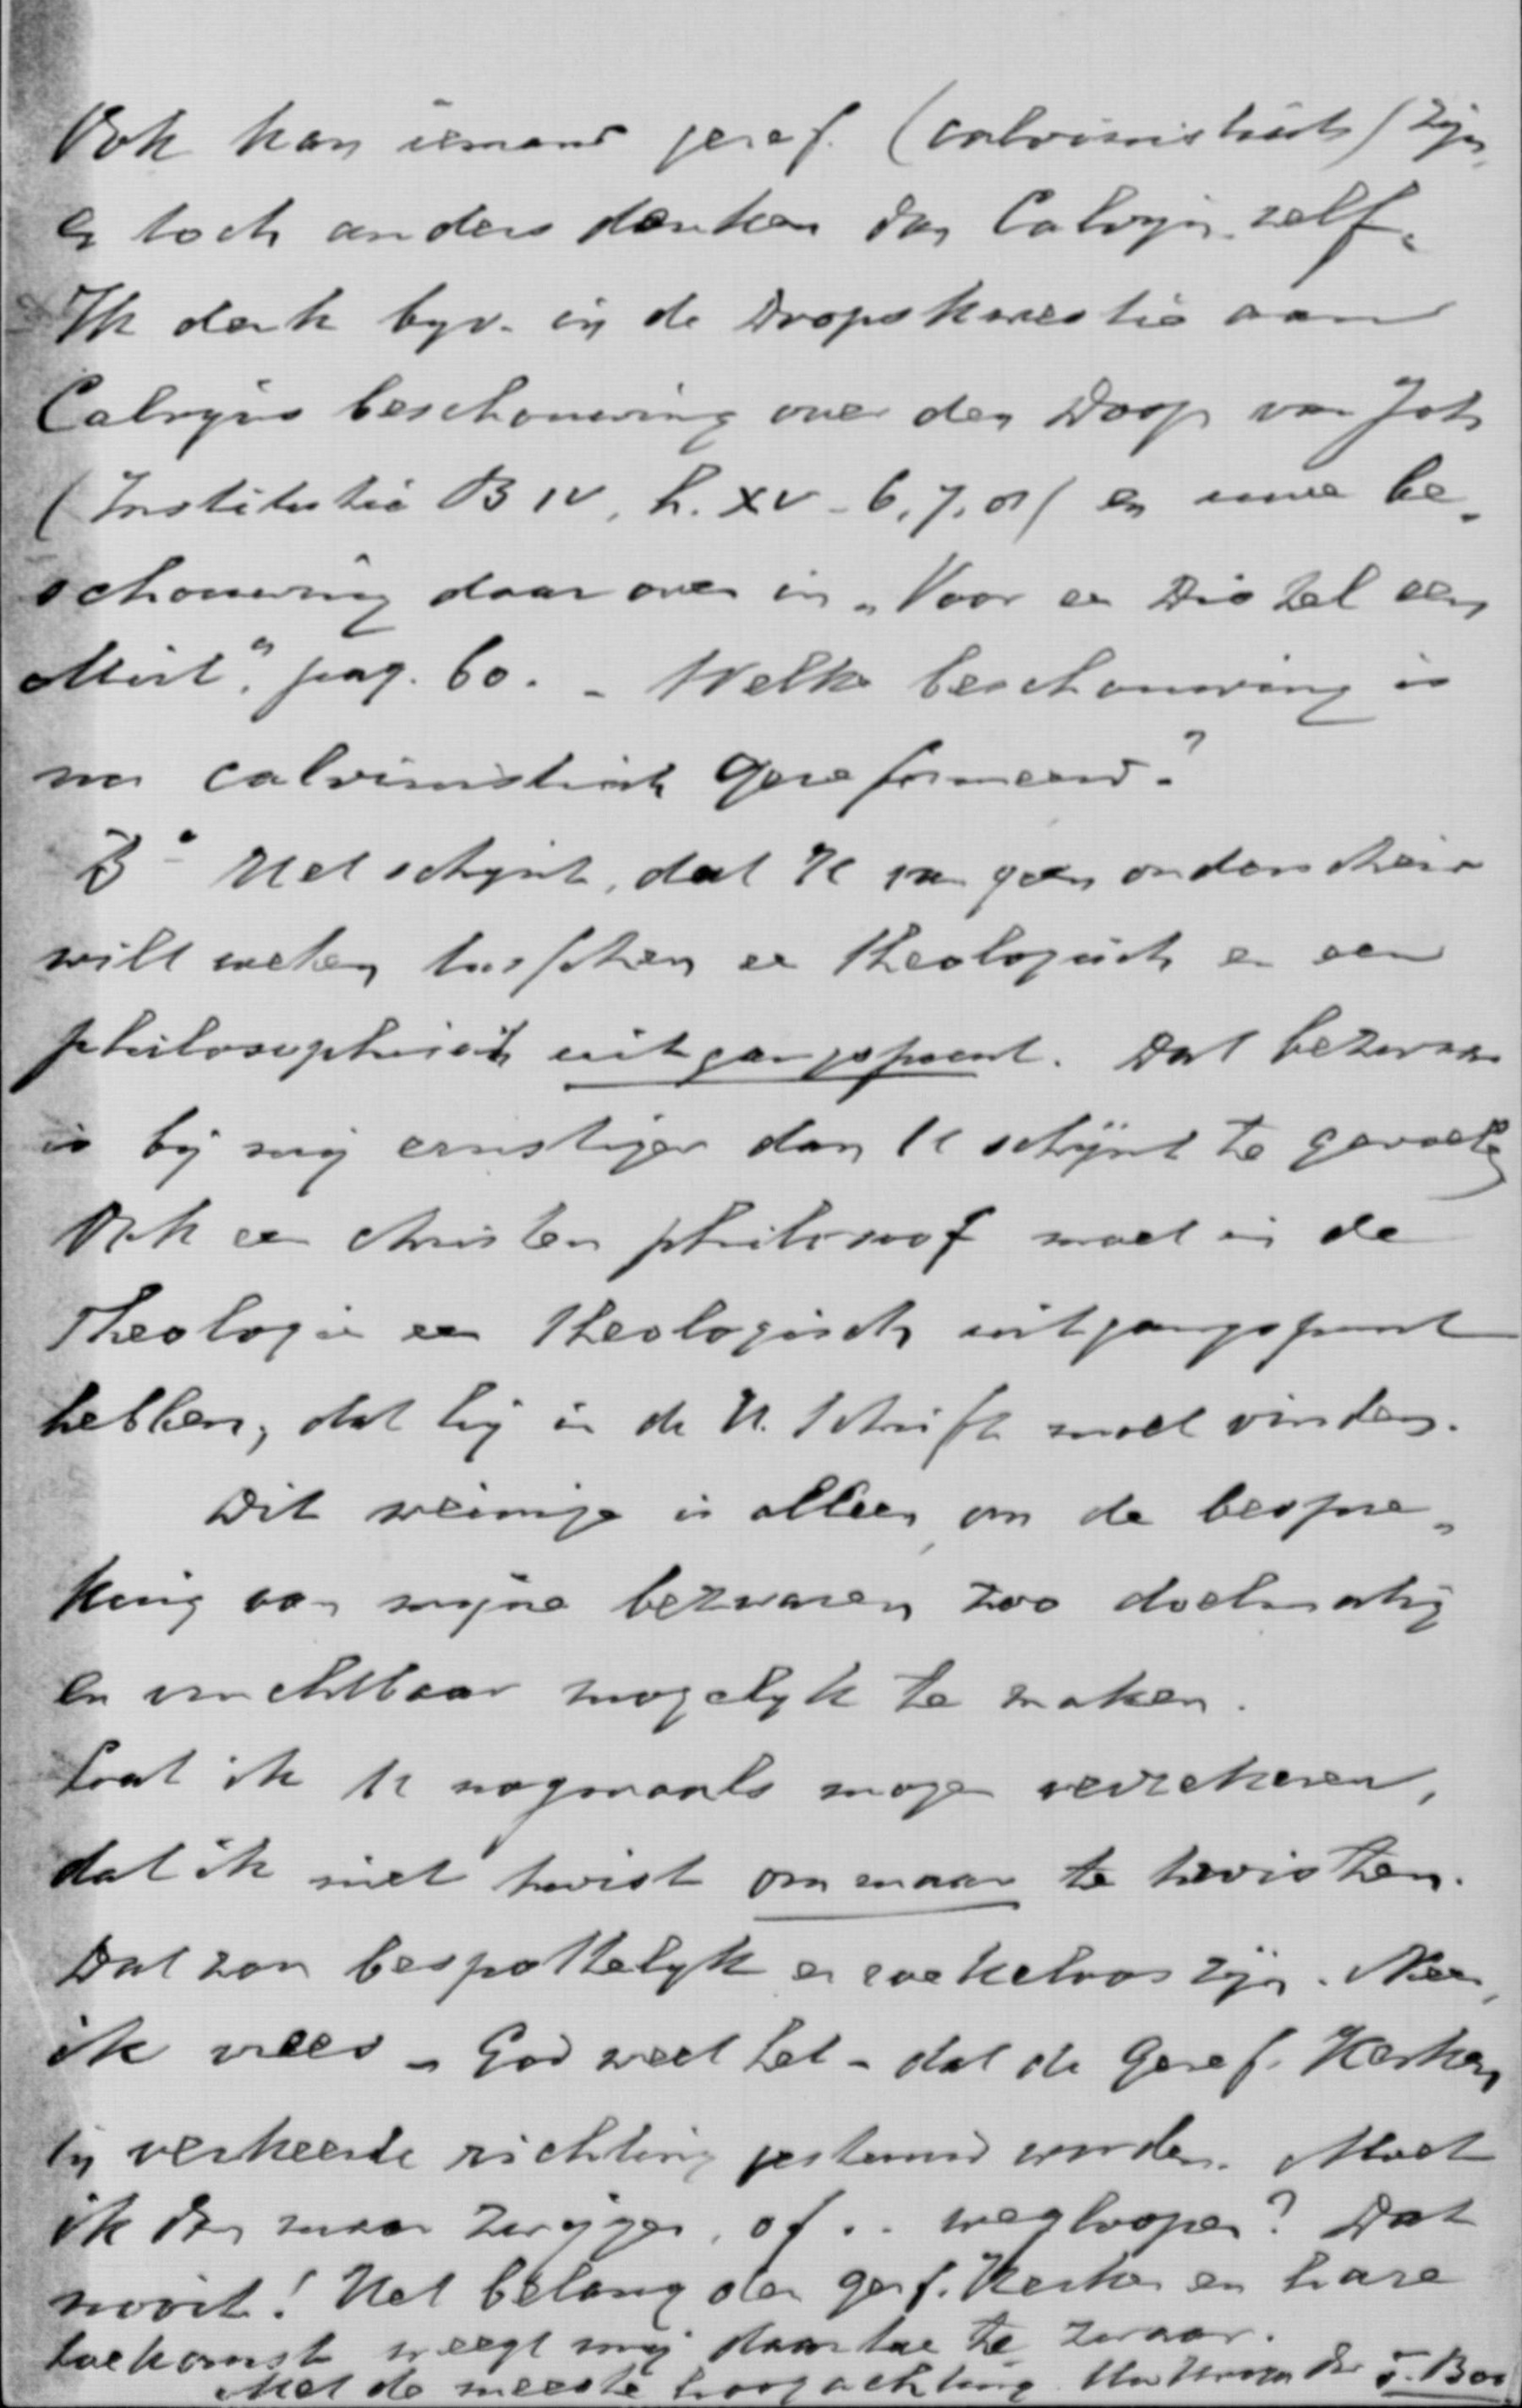 Ook kan iemand geref. (calvinistisch) zijn
en toch anders denken dan Calvijn zelf.
Ik denk bijv. in de Doopskwestie aan
Calvijns beschouwing over den Doop van Joh
(Institutie B IV, h. XV - 6, 7, 8) en uwe be-
schouwing daarover in "Voor een Distel een
Mirt", pag. 60. - Welke beschouwing is
nu calvinistisch Gereformeerd?
B° Het schijnt, dat U van geen onderscheid
wilt weten tusschen een theologisch en een
philosophisch uitgangspunt. Dat bezwaar
is bij mij ernstiger dan U schijnt te gevoelen
Ook een christen philosoof moet in de
Theologie een theologisch uitgangspunt
hebben, dat hij in de H. Schrift moet vinden.
Dit weinige is alleen om de bespre-
king van mijne bezwaren zoo doelmatig
en vruchtbaar mogelijk te maken.
Laat ik U nogmaals mogen verzekeren,
dat ik niet twist om maar te twisten.
Dat zou bespottelijk en roekeloos zijn. Neen,
ik vrees - God weet het - dat de Geref. Kerken
in verkeerde richting gestuurd worden. Moet
ik dan maar zwijgen, of .. wegloopen? Dat
nooit! Het belang der geref. Kerken en hare
toekomst weegt mij daartoe te zwaar.
Met de meeste hoogachting Uw dr. T. Bos